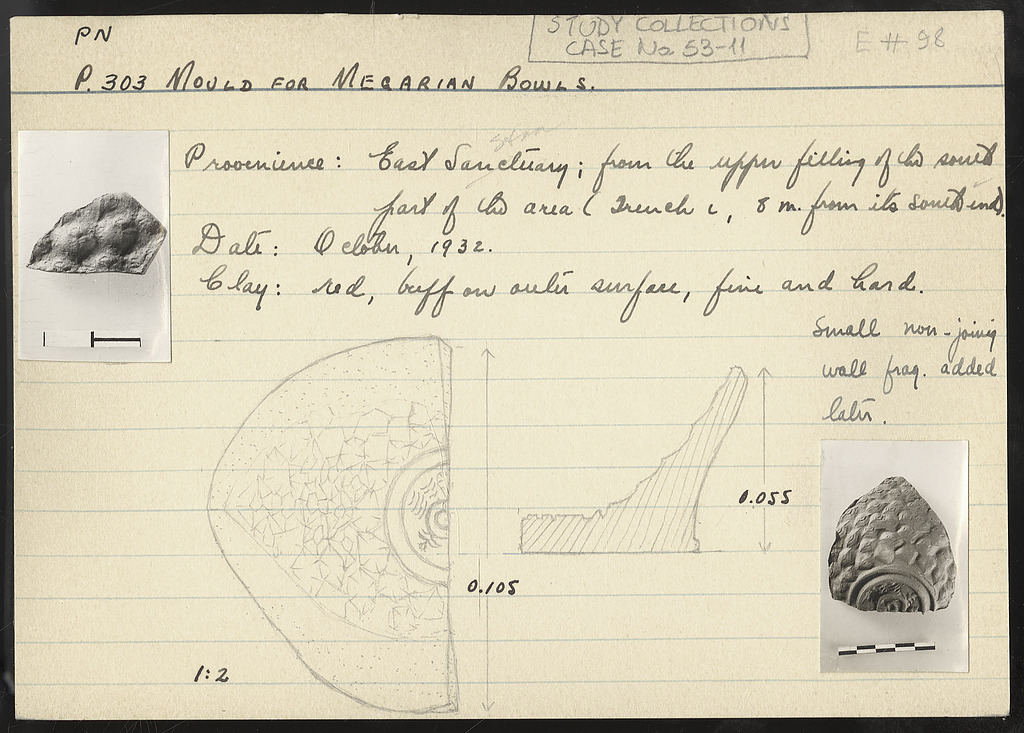 PN
STUDY COLLECTIONS
CASE No 53-11
E # 98
P. 303 MOULD FOR MEGARIAN BOWLS.
Provenience: East Sanctuary; from the upper filling of the south
part of the area (Trench C, 8 m. from its south end).
Date: October, 1932.
Clay: red, buff on outer surface, fine and hard.
Small non-joining
wall frag. added
later.
0.055
0.105
1:2